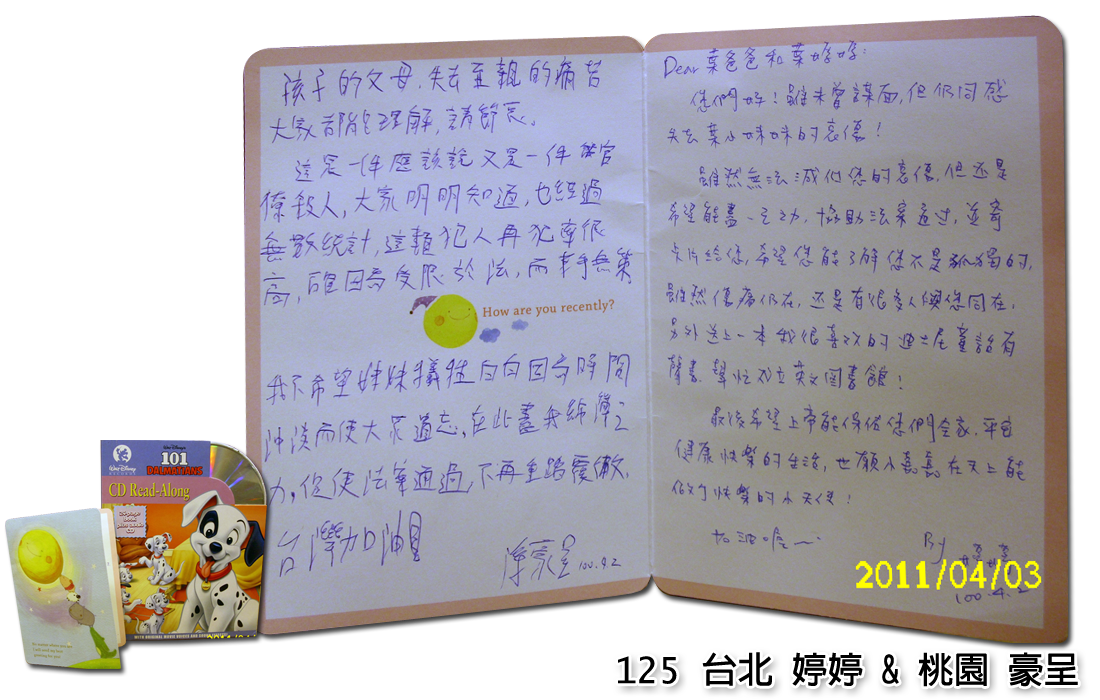 孩子的父母,失去至親的痛苦
大家都能理解,請節哀。
這是一件應該說又是一件官
僚殺人,大家明明知道,也經過
無數統計,這類犯人再犯率很
高,確因為受限於法,而束手無策
How are you recently?
我不希望妹妹犧牲白白因為時間
沖淡而使大眾遺忘,在此盡我綿薄之
力,促使法案通過,不再重蹈覆轍.
台灣加油
100.4.2
Dear 葉爸爸和葉媽媽:
您們好!雖未曾謀面,但仍同感
失去葉小妹妹的哀傷!
雖然無法減低您的哀傷,但还是
希望能盡一己之力,協助法案通过,並寄
卡片給您,希望您能了解您不是孤獨的,
雖然傷痛仍在,还是有很多人與您同在,
另外送上一本我很喜欢的迪士尼童話有
聲書,幫忙成立英文图書館!
最後希望上帝能保佑您們全家,平安
健康快樂的生活,也願小嘉嘉在天上能
做个快樂的小天使!
加油唷~
By 婷婷
100.4.2
2011/04/03
WALT DISNEY RECORDS
Walt Disney's
101
DALMATIANS
CD Read-Along
125 台北 婷婷 & 桃園 豪呈